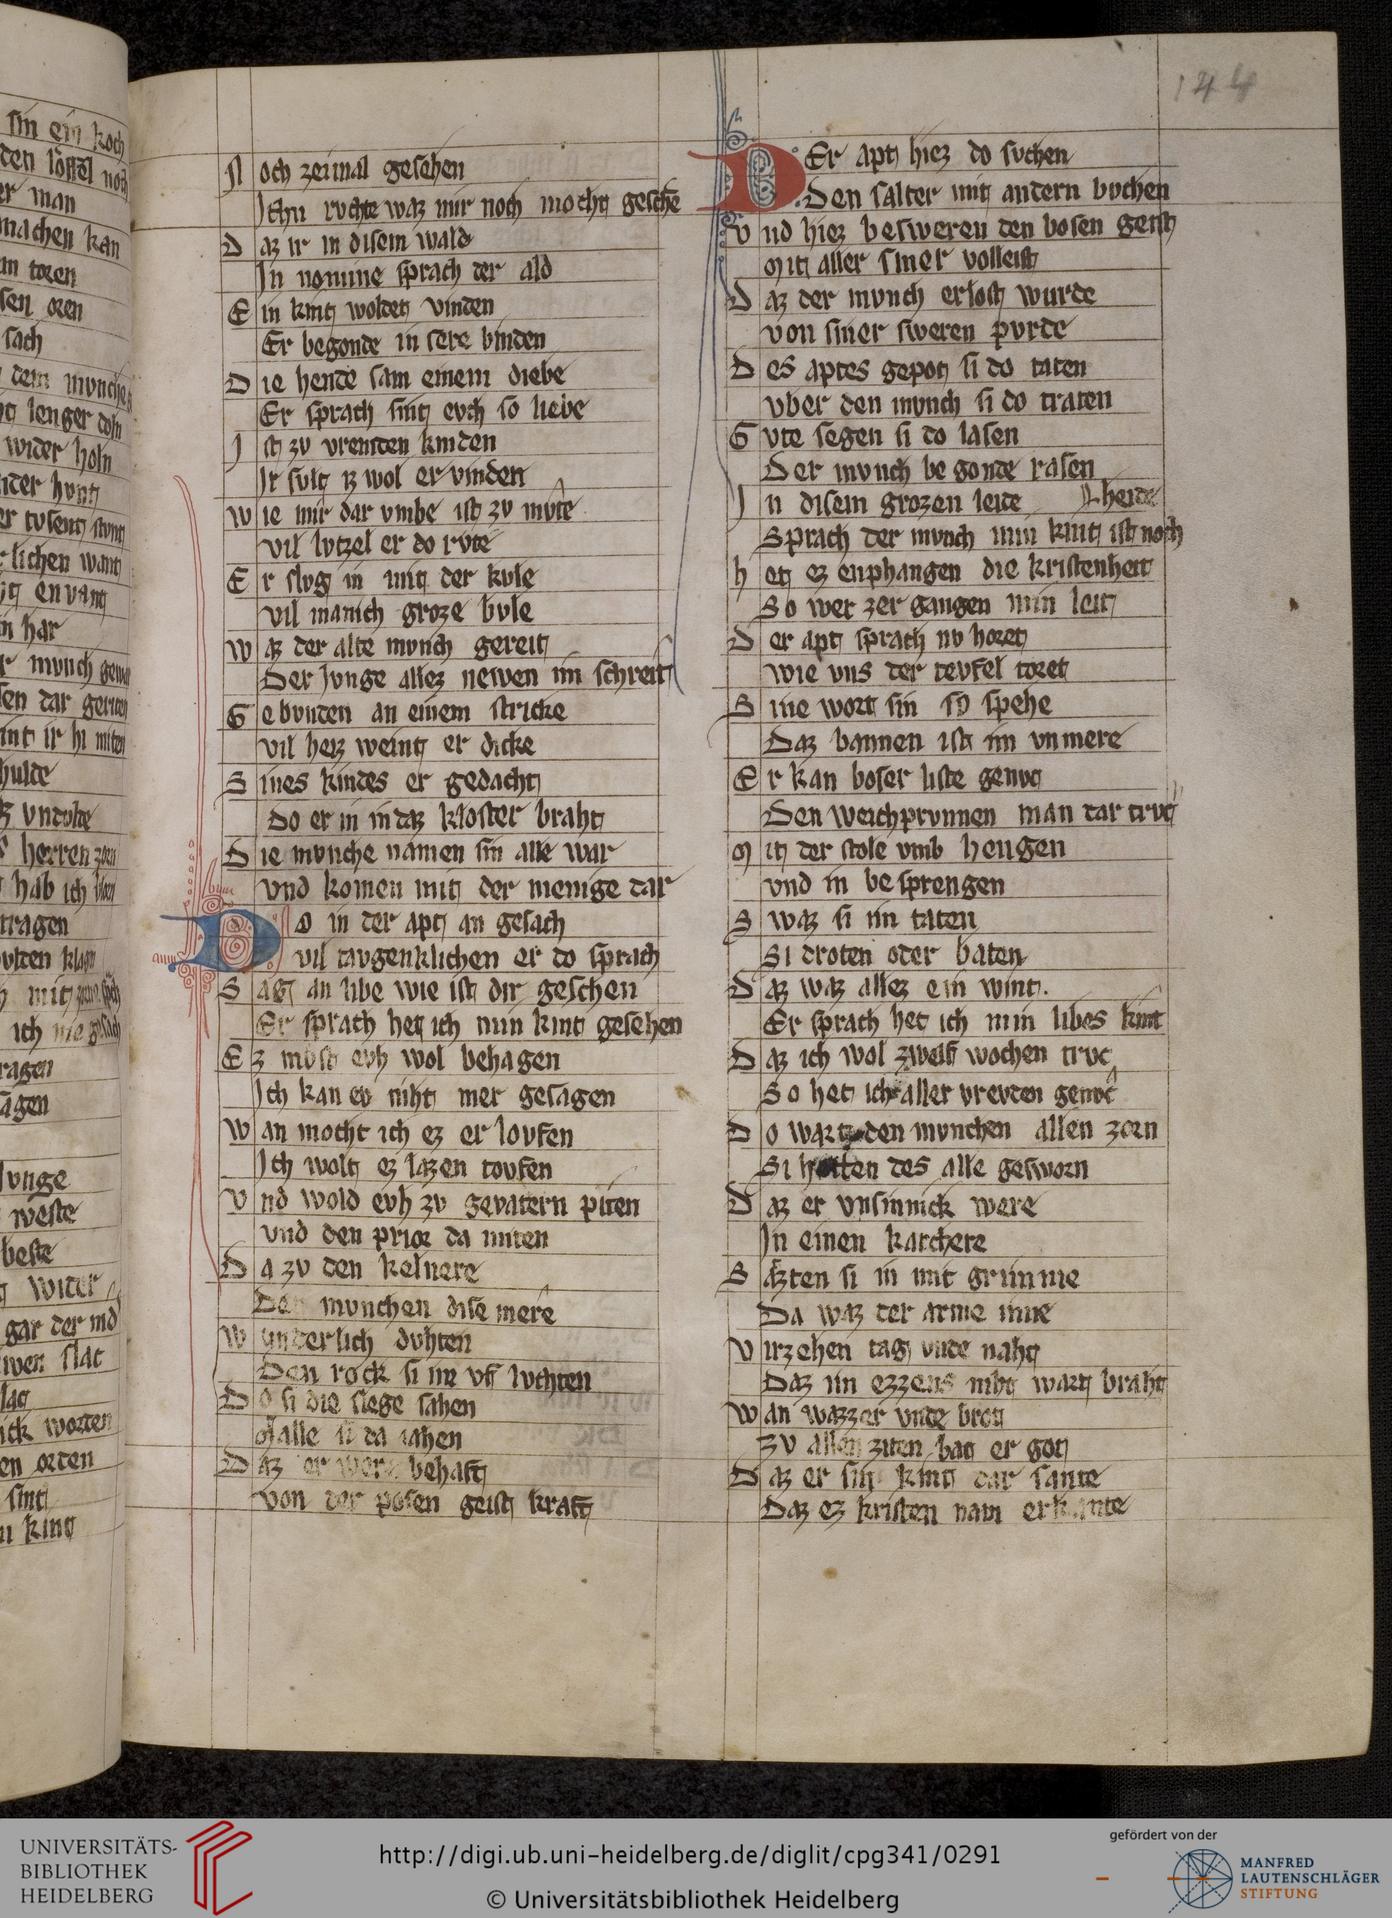 144
Noch zeimal gesehen
Ichn ruchte waz mir noch mocht geschen
Daz ir in disem wald
In nomine sprach der ald
Ein kint woldet vinden
Er begonde in sere binden
Die hende sam einem diebe
Er sprach sint evch so liebe
Ist zv vremden kinden
Ir sult iz wol ervinden
Wie mir dar vmbe ist zv mvte
vil lvtzel er do rvte
Er slvg in mit der kvle
vil manich groze bvle
Waz der alte mvnch gereit
Der Jvnge allez newen im schreit
Gebvnden an einem stricke
vil heiz weint er dicke
Sines kindes er gedacht
Do er in in daz kloster braht
Die mvnche namen sin alle war
vnd komen mit der menige dar
Do in der apt an gesach
vil tavgenklichen er do sprach
Sag an libe wie ist dir geschen
Er sprach het ich min kint gesehen
Ez mvst evh wol behagen
Ich kan ev niht mer gesagen
Wan mocht ich ez erlovfen
Ich wolt ez lazen tovfen
Vnd wold evh zv gevatern piten
vnd den prior da miten
Da zv den kelnere
Den mvnchen dise mere
Wunderlich dvhten
Den rock si im vf lvchten
Do si die slege sahen
Alle si da iahen
Daz er were behaft
von der posen geist kraft
Der apt hiez do svchen
Den salter mit andern bvchen
Vnd hiez besweren den bosen geist
Mit aller siner volleist
Daz der mvnch erlost wurde
von siner sweren pvrde
Des aptes gepot si do taten
vber den mvnch si do traten
Gvte segen si do lasen
Der mvnch begonde rasen
In disem grozen leide
Sprach der mvnch min kint ist noch heide
Het ez enphangen die kristenheit
So wer zergangen min leit
Der apt sprach nv horet
wie vns der tevfel toret
Sine wort sin so spehe
Daz bannen ist im vnmere
Er kan boser liste genvc
Den weichprvnnen man dar trvc
Mit der stole vmb hengen
vnd in besprengen
Swaz si im taten
Si droten oder baten
Daz waz allez ein wint.
Er sprach het ich min libes kint
Daz ich wol zwelf wochen trvc
So het ich aller vrevden genvc
Do wart den mvnchen allen zorn
Si hetten des alle gesworn
Daz er vnsinnick were
In einen karchere
Sazten si in mit grimme
Da waz der arme inne
Virzehen tag vnde naht
Daz im ezzens niht wart braht
Wan wazzer vnde brot
zv allen ziten bat er got
Daz er sin kint dar sante
Daz ez kristen nam erkante
sin ein koch
man
machen kan
toren
sen oren
sach
dem mvnche
lenger
wider holn
hvnt
tvsent stvnt
lichen want
envant
har
mvnch
hulde
herren
hab ich
tragen
ich nie gesach
ragen
agen
Jvnge
weste
beste
wider
gar der
wen slac
slag
ick worten
en orden
sint
kint
UNIVERSITÄTS-
BIBLIOTHEK
HEIDELBERG
http://digi.ub.uni-heidelberg.de/diglit/cpg341/0291
© Universitätsbibliothek Heidelberg
gefördert von der
MANFRED
LAUTENSCHLÄGER
STIFTUNG